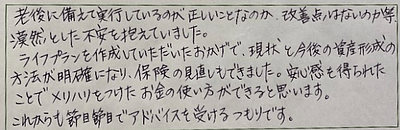 老後に備えて実行しているのが正しいことなのか、改善点はないのか等、
漠然とした不安を抱えていました。
ライフプランを作成していただいたおかげで、現状と今後の資産形成の
方法が明確になり、保険の見直しもできました。安心感を得られた
ことでメリハリをつけたお金の使い方ができると思います。
これからも節目節目でアドバイスを受けるつもりです。